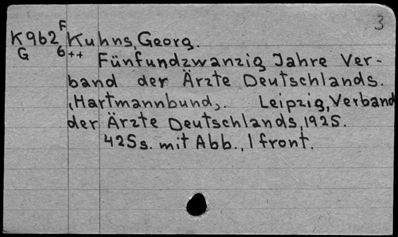 3
K962 F Kuhns, Georg.
G 6++ Fünfundzwanzig Jahre Ver-
band der Ärzte Deutschlands.
,Hartmannbund,. Leipzig, Verband
der Ärzte Deutschlands, 1925.
425s. mit Abb., 1 front.